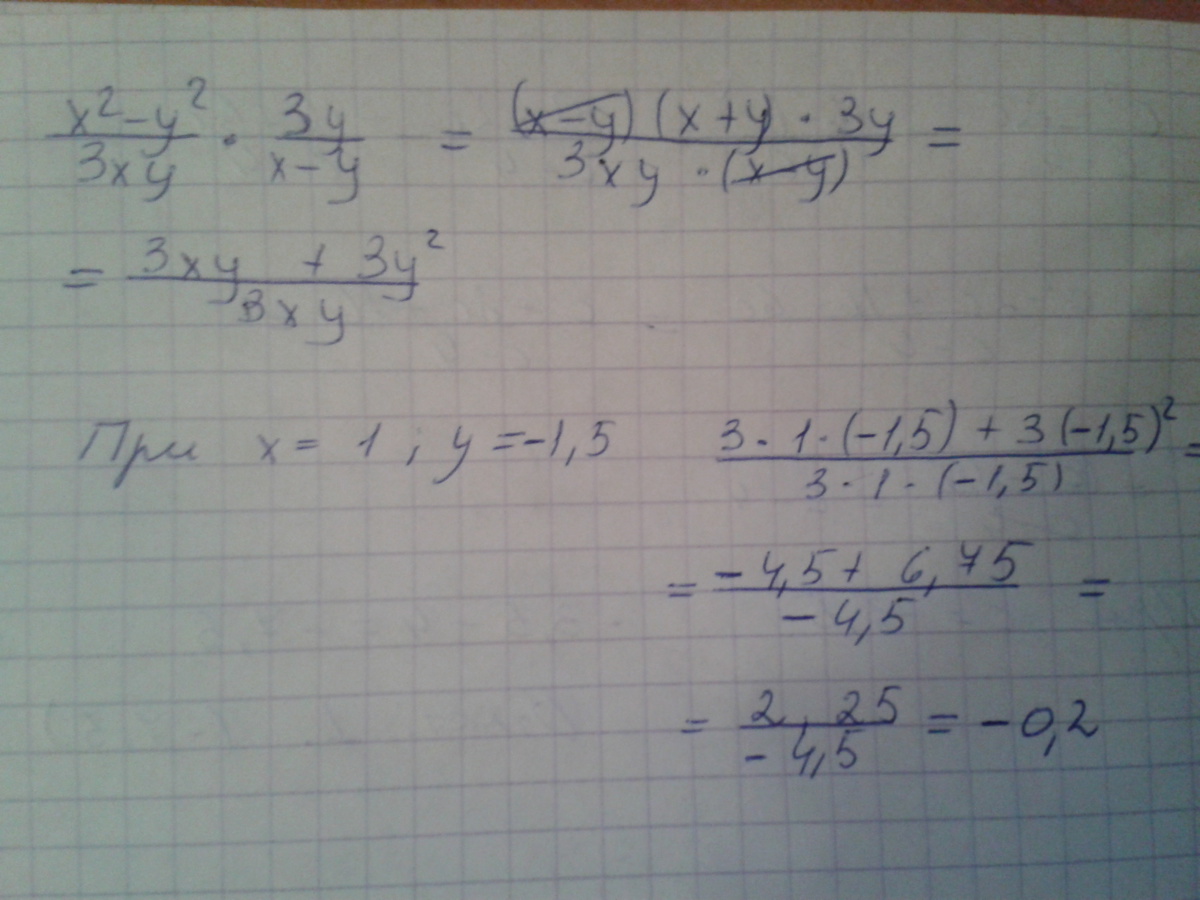 x²-y²/3xy · 3y/x-y = (x-y)(x+y)·3y/3xy·(x-y) =
= 3xy + 3y²/3xy
При x = 1; y = -1,5 3·1·(-1,5)+3(-1,5)²/3·1·(-1,5) =
= -4,5+6,75/-4,5 =
= 2,25/-4,5 = -0,2